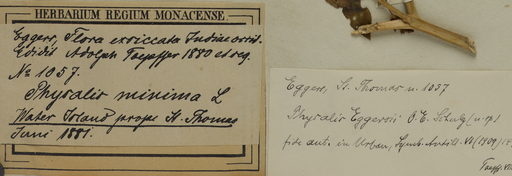 HERBARIUM REGIUM MONACENSE.
Eggers, Flora exsiccata Indiae occid.
Edidit Adolph Toepffer 1880 et seq.
No 1057.
Physalis minima L
Water Island prope St. Thomas
Juni 1881.
Eggers, St. Thomas n. 1057
Physalis Eggersii O.E. Schulz n. sp!
fide aut. in Urban, Symb. Antill. VI (1909)
Toepff.